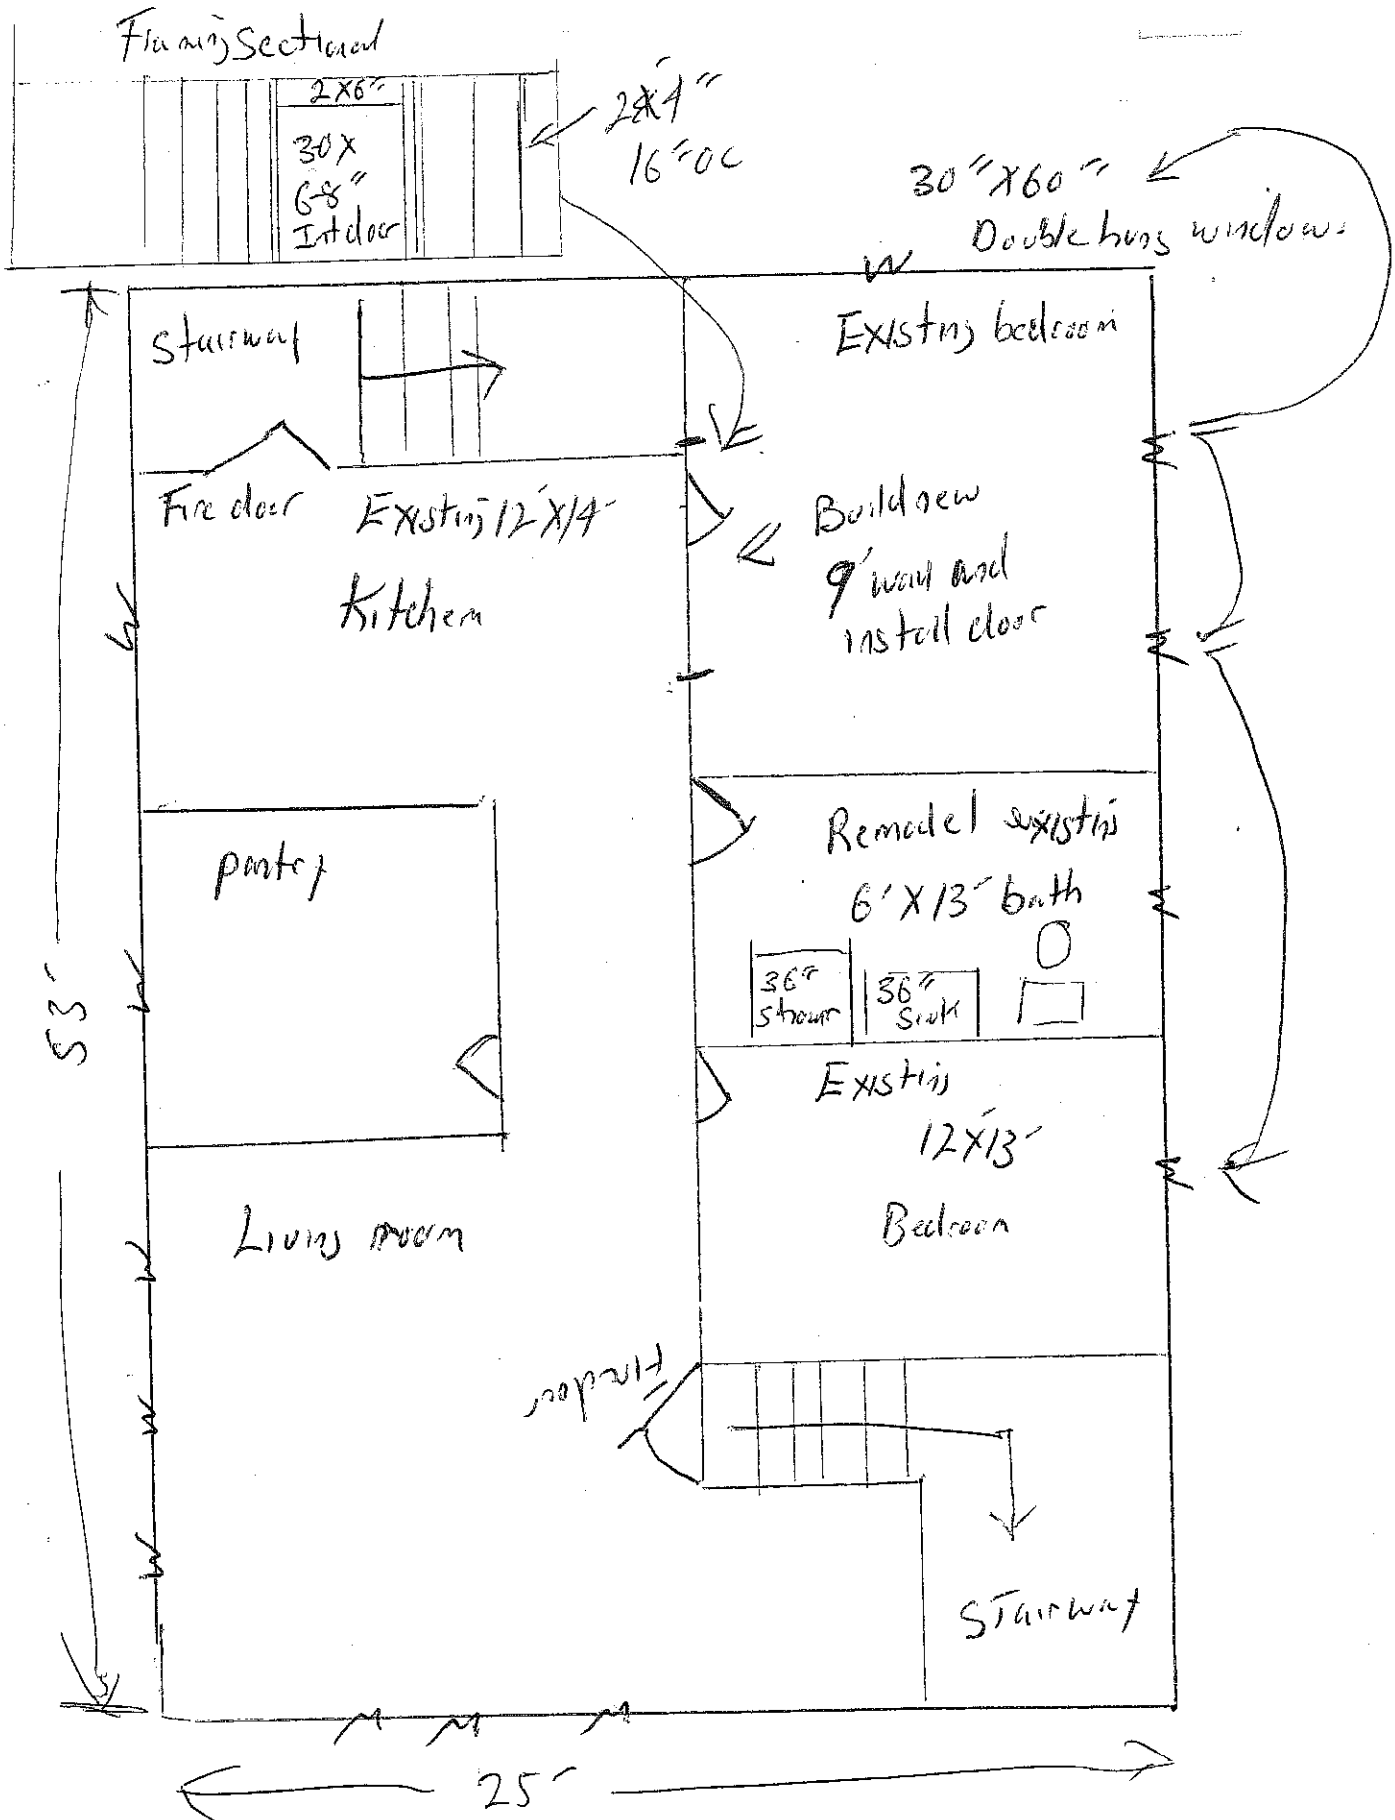 Framing Sectional
2X6"
30X
6-8"
Int door
2X4"
16" OC
30"X60"
Double hung windows
W
Stairway
Existing bedroom
Fire door
Existing 12'X14'
Kitchen
Build new
9' wall and
install door
W
W
W
pantry
Remodel existing
6'X13' bath
W
W
36"
Shower
36"
Sink
53'
Existing
12'X13'
Bedroom
W
Living room
W
Fire door
W
W
Stairway
W
W
W
25'